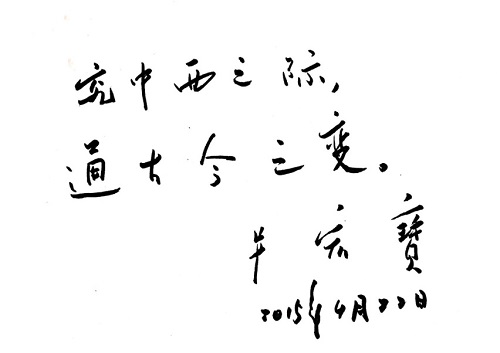 究中西之际，
通古今之变。
寶
2015年4月22日